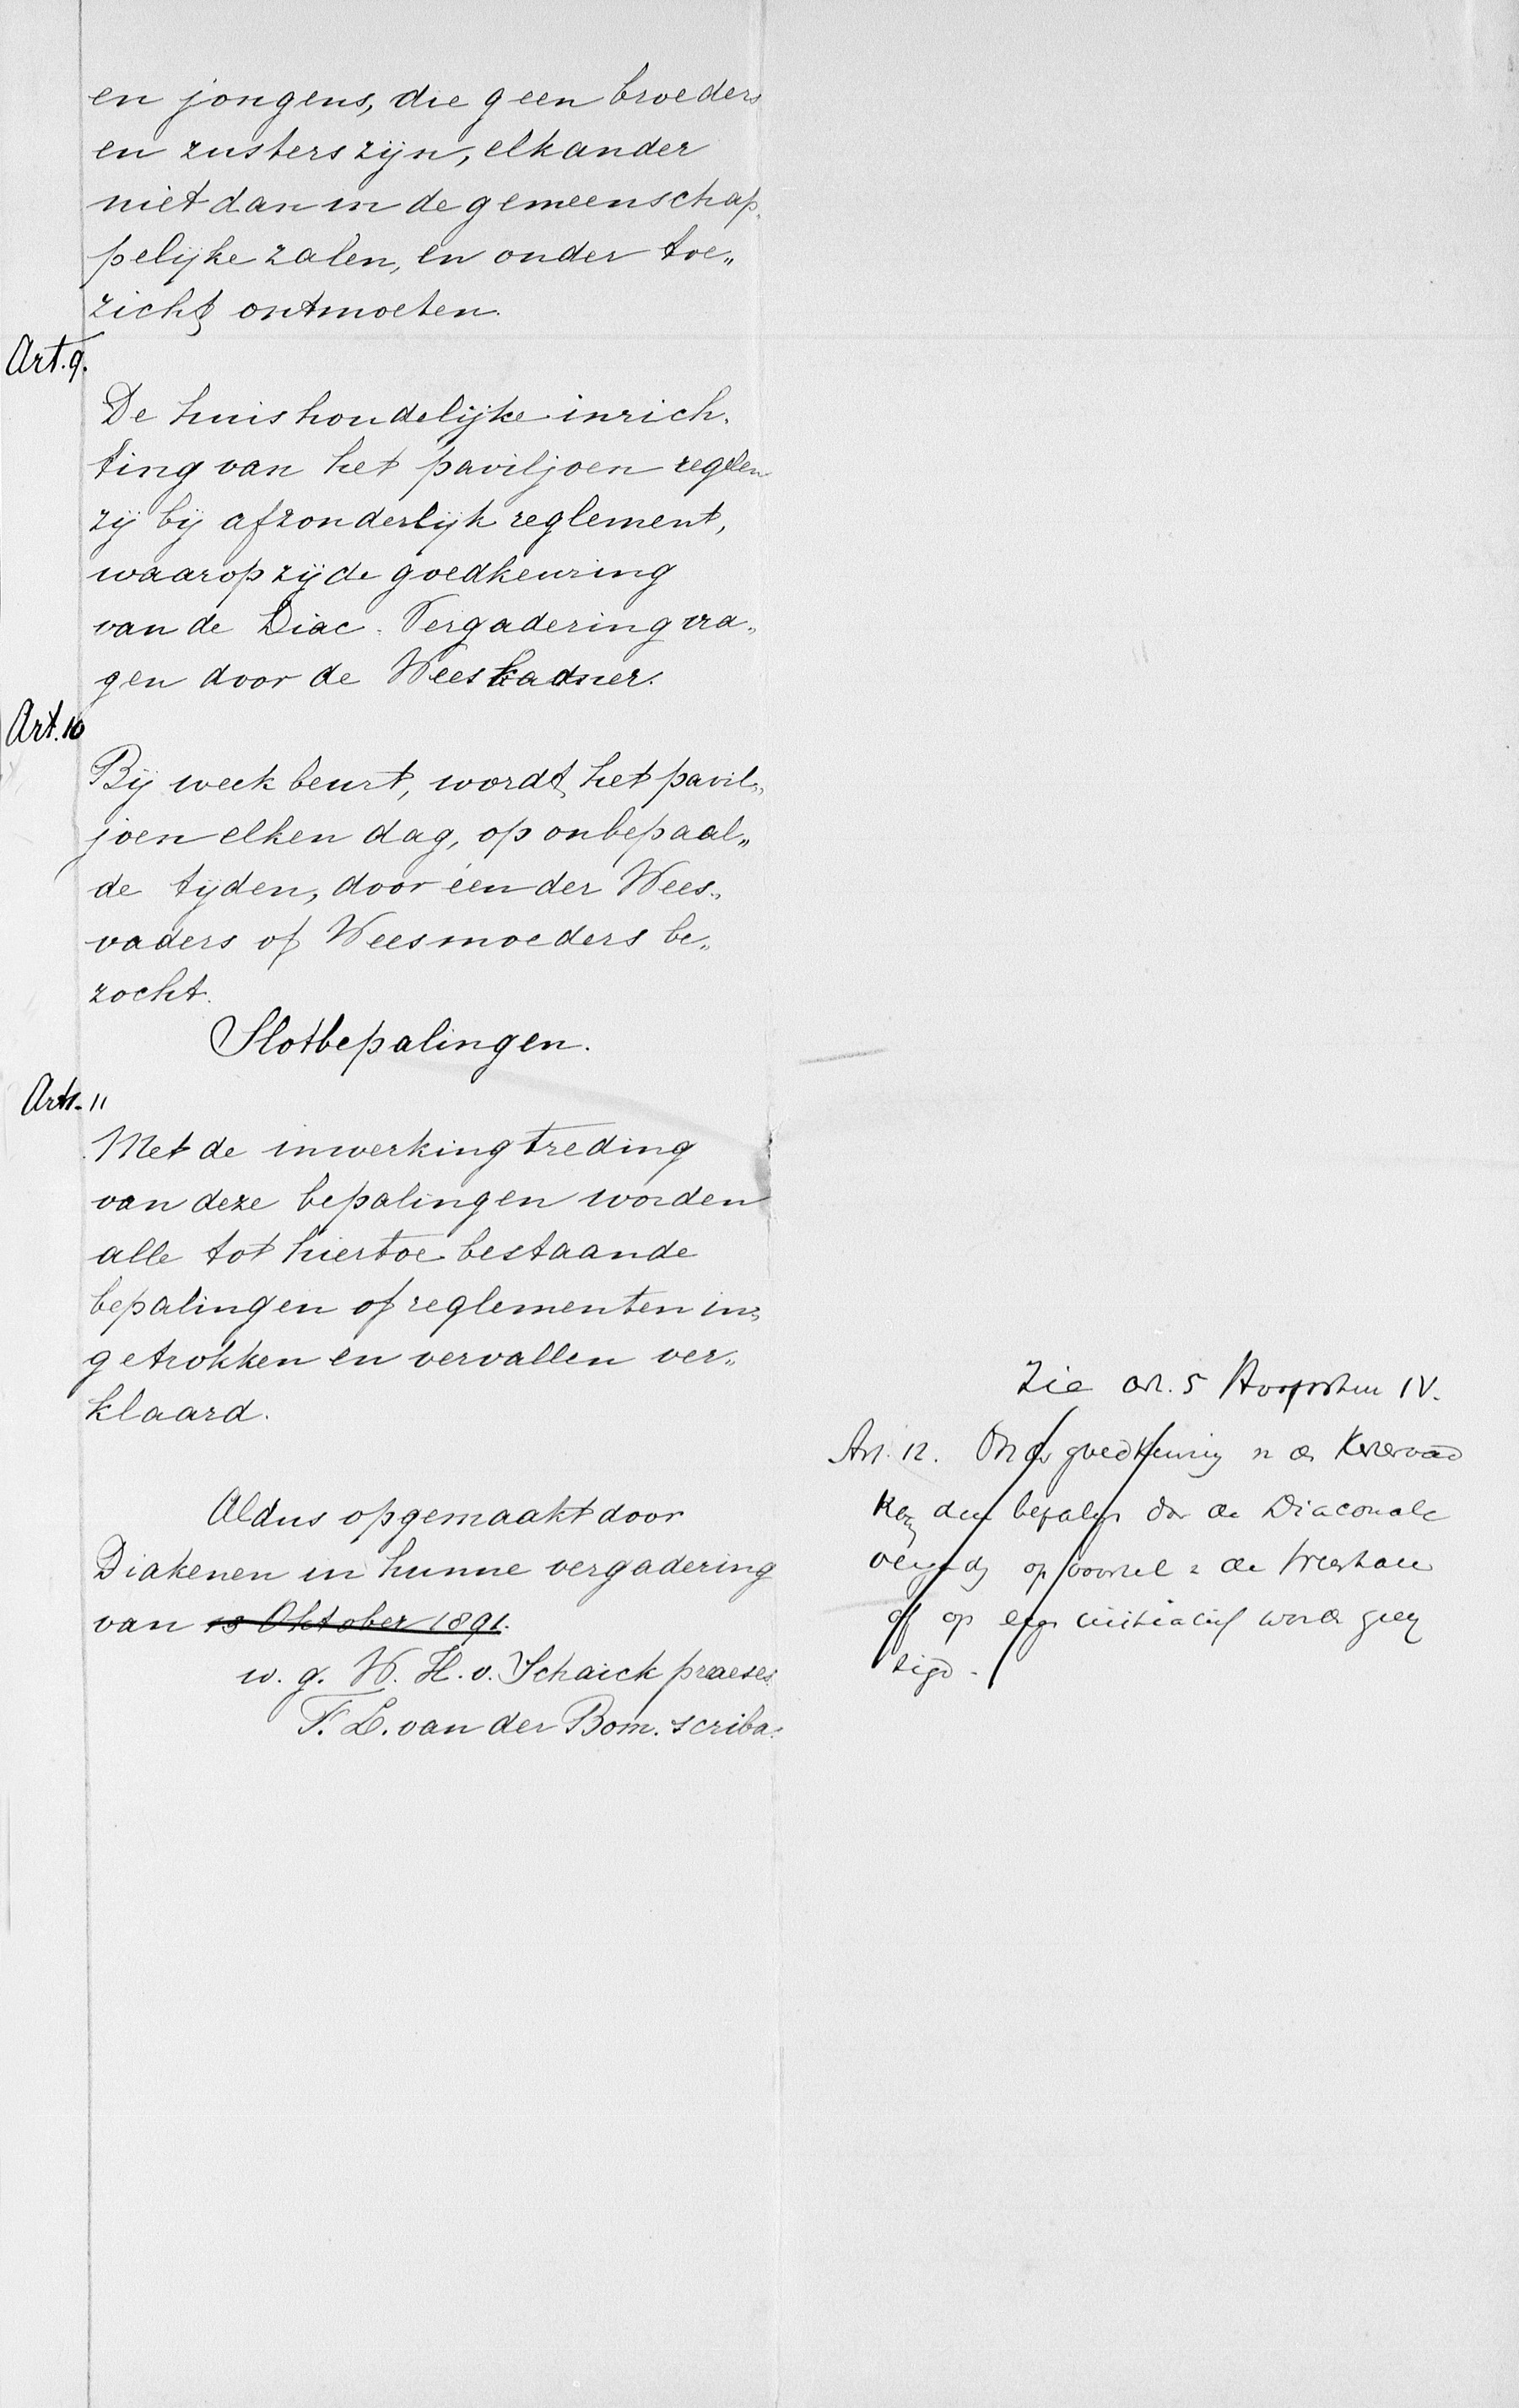 en jongens, die geen broeders
en zusters zijn, elkander
niet dan in de gemeenschap„
pelijke zalen, en onder toe„
zicht ontmoeten.
Art. 9.
De huishoudelijke inrich„
ting van het paviljoen regelen
zij bij afzonderlijk reglement,
waarop zij de goedkeuring
van de Diac. Vergadering vra„
gen door de Weeskamer.
Art. 10
Bij weekbeurt, wordt het pavil„
joen elken dag, op onbepaal„
de tijden, door één der Wees„
vaders of Weesmoeders be„
zocht.
Slotbepalingen.
Art. 11
Met de inwerkingtreding
van deze bepalingen worden
alle tot hiertoe bestaande
bepalingen of reglementen in„
getrokken en vervallen ver„
klaard.
Aldus opgemaakt door
Diakenen in hunne vergadering
van 13 Oktober 1891.
w. g. W. H. v. Schaick praeses.
F. L. van der Bom. scriba.
Zie art. 5 IV.
Art. 12. Onder goedkeuring de Kerkeraad
bepalingen door de Diaconale
op voorstel de
of op eigen initiatief worden gewij
zigd.